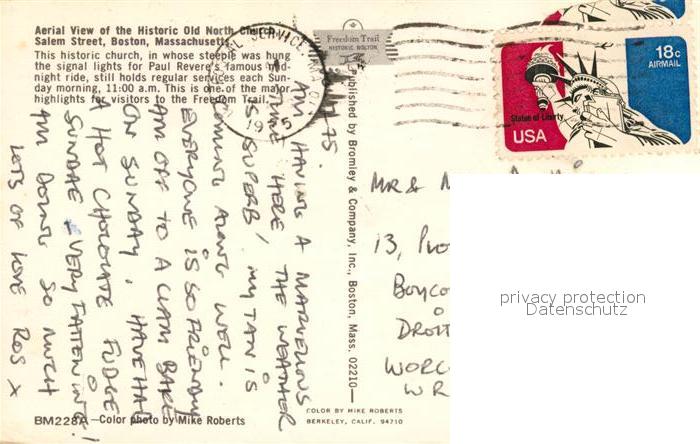 Aerial View of the Historic Old North Church
Salem Street, Boston, Massachusetts
This historic church, in whose steeple was hung
the signal lights for Paul Revere's famous mid-
night ride, still holds regular services each Sun-
day morning, 11:00 a.m. This is one of the major
highlights for visitors to the Freedom Trail.
Freedom Trail
HISTORIC BOSTON
18c
AIRMAIL
Statue of Liberty
USA
Published by Bromley & Company, Inc., Boston, Mass. 02210—
75.
AM HAVING A MARVELLOUS
TIME HERE, THE WEATHER
IS SUPERB! MY TAN IS
COMING ALONG WELL.
EVERYONE IS SO FRIENDLY
AM OFF TO A CLAM BAKE
ON SUNDAY. HAVE HAD
A HOT CHOCOLATE FUDGE
SUNDAE - VERY FATTENING!
AM DOING SO MUCH
LOTS OF LOVE ROS X
MR &
13,
BM228A—Color photo by Mike Roberts
COLOR BY MIKE ROBERTS
BERKELEY, CALIF. 94710
privacy protection
Datenschutz